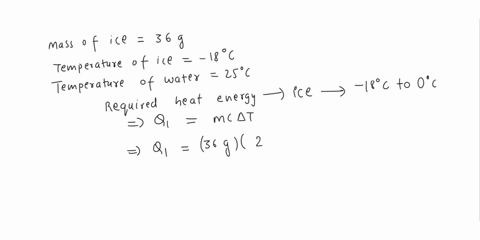 mass of ice = 36 g
Temperature of ice = -18°C
Temperature of water = 25°C
Required heat energy → ice → -18°C to 0°C
⇒ Q₁ = mcΔT
⇒ Q₁ = (36 g)( 2